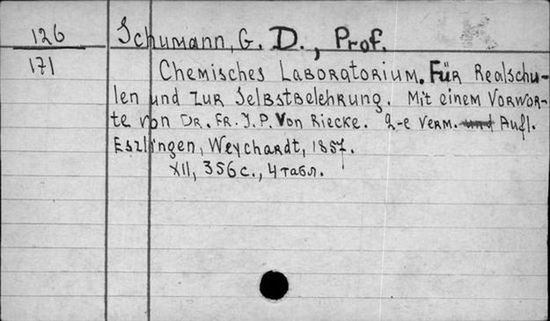 126
171
Schumann, G. D., Prof.
Chemisches Laboratorium. Für Realschu-
len und zur Selbstbelehrung. Mit einem Vorwor-
te von Dr. Fr. J. P. Von Riecke. 2-e verm. und Aufl.
Eszlingen, Weychardt, 1857.
XII, 356 с., 4 табл.